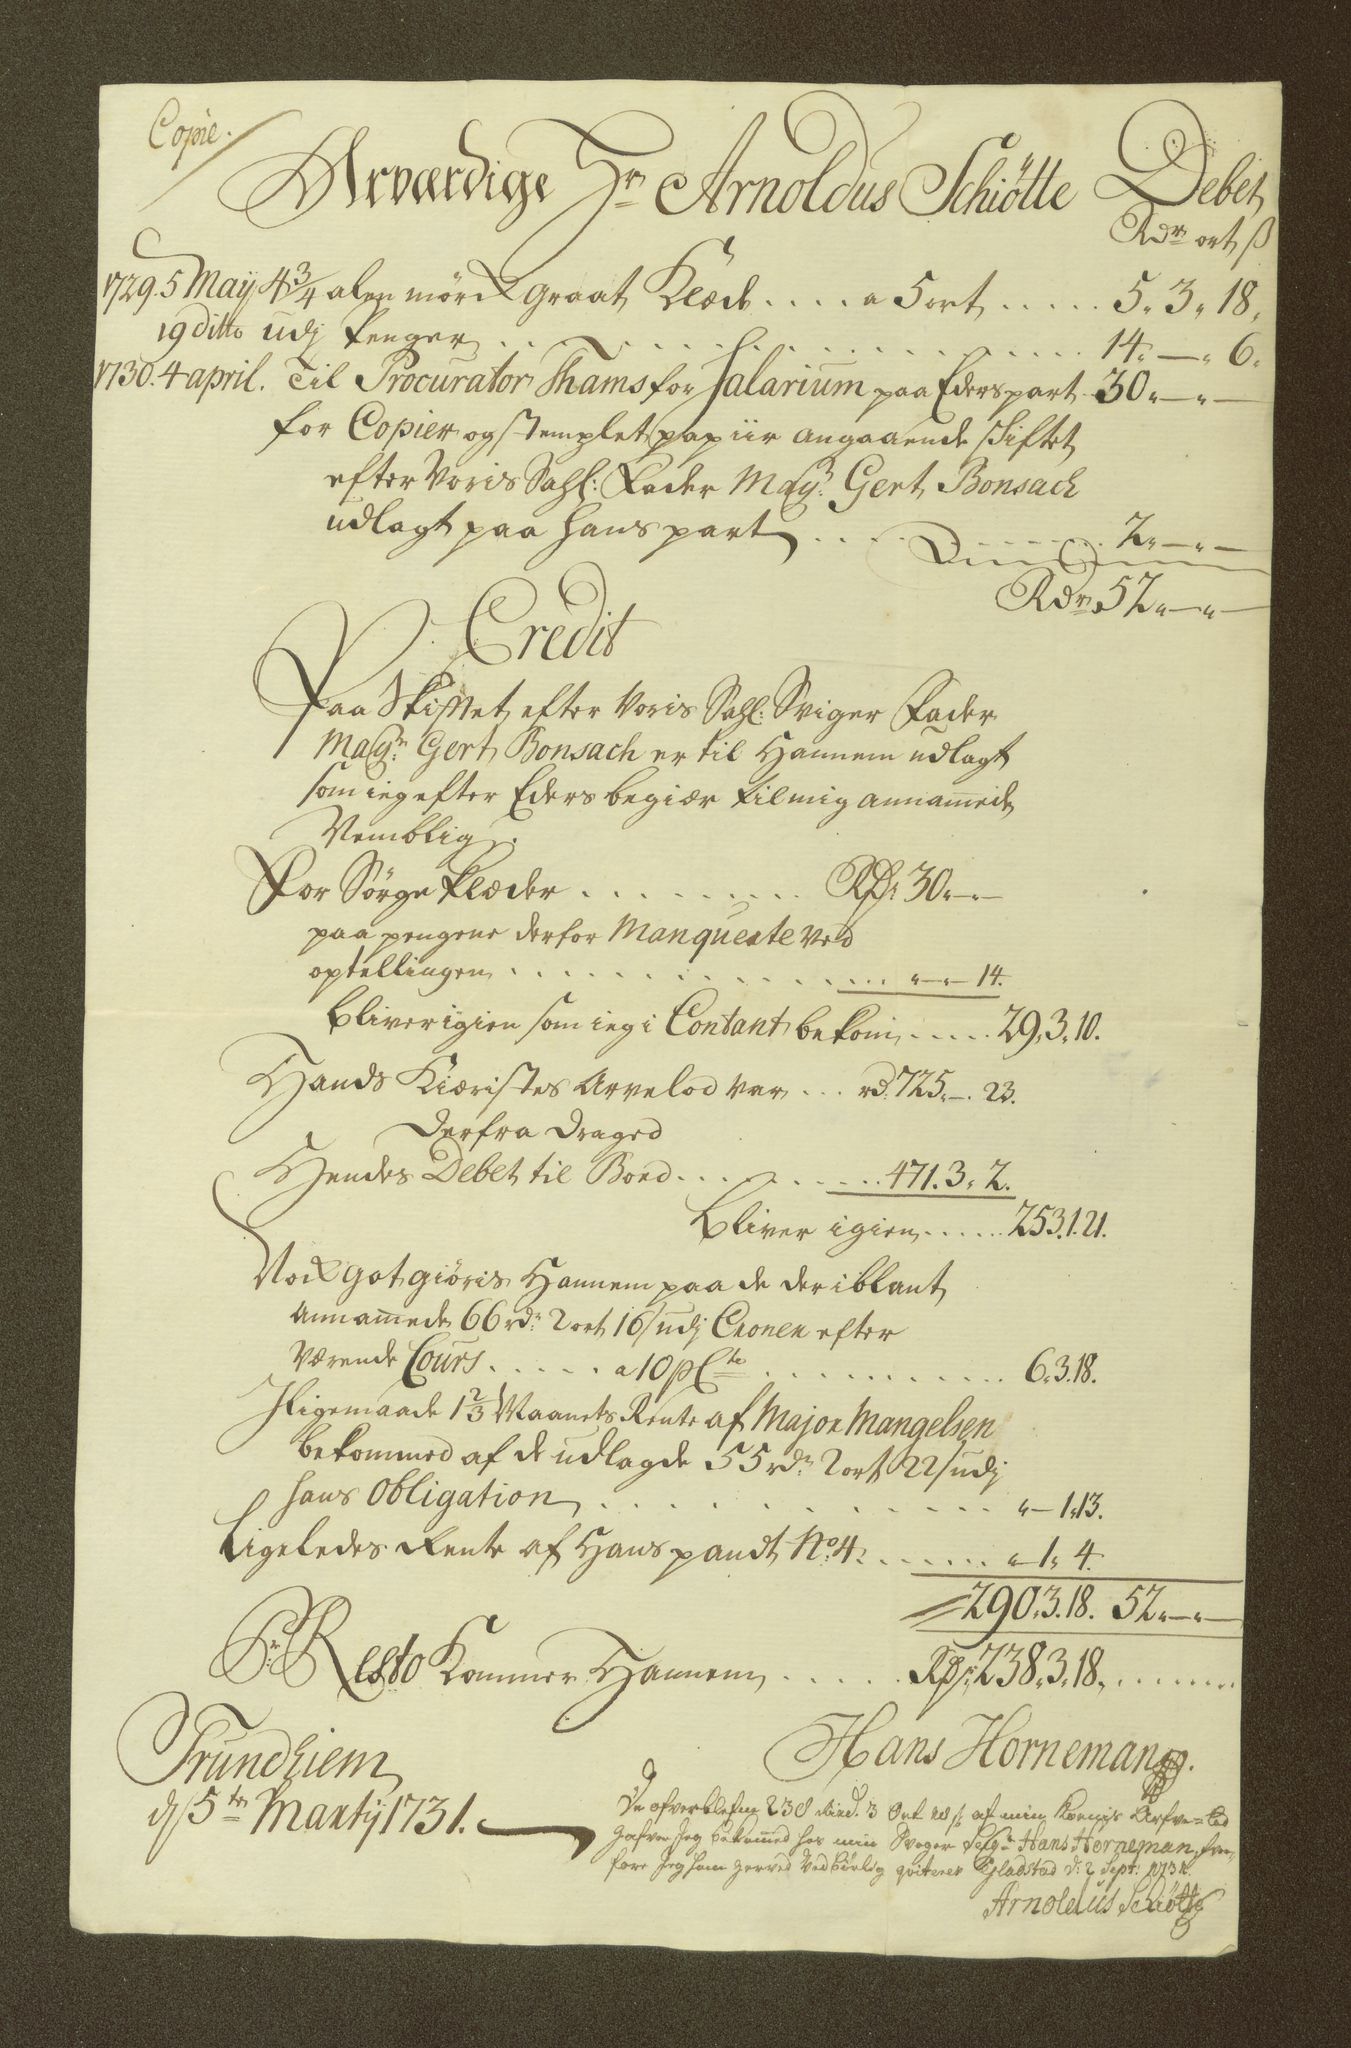 Copie.
Ærværdige Hr Arnoldus Schiötte Debet
Rdr ort ß
1729. 5 Maij 4 3/4 alen mörck graat Klæde .... a 5 ort ..... 5. 3. 18.
19 Ditto udj Penger ..... 14. — . 6.
1730. 4 april. Til Procurator Thams for Salarium paa Eders part 30. — . —
for Copier og stemplet papiir angaaende skiftet
efter Voris Sahl: Fader Mag: Gert Bonsach
udlagt paa hans part ..... 2. — . —
Rdr 52. — . —
Credit
Paa Skiftet efter Voris Sahl: Sviger Fader
Magr: Gert Bonsach er til Hannem udlagt
som ieg efter Eders begiær til mig annamede
Nemblig.
For Sörge klæder ......... Rdr 30. — . —
paa pengene derfor Manquerte ved
optellingen ..... " — " 14.
bliver igien som ieg i Contant bekom ..... 29. 3. 10.
Hands Kiæristes Arvelod var ... rd. 725. — . 23.
derfra draged
Hendes Debet til Boed ..... 471. 3. 2.
bliver igien ...... 253. 1. 21.
Nock got giöris Hannem paa de der iblant
annamede 66 rdr 2 ort 16 ß udj Croner efter
Værende Cours ..... a 10 pCto ..... 6. 3. 18.
Iligemaade 1 2/3 Maanets Rente af Major Mangelsen
bekommed af de udlagde 55 rdr 2 ort 22 ß udj
hans Obligation ..... " — 1. 13.
Ligeledes Rente af Hans pandt No: 4. ..... " 1. 4.
290. 3. 18. 52. — . —
Pr Resto Kommer Hannem ..... Rdr 238. 3. 18. ........
Trundhiem
d 5te Martij 1731.
Hans Horneman.
De ofverblefne 238 Rixd. 3 Ort 18 ß. af min Koenis Arfve-lod
hafver Jeg bekommed hos min Svoger Sr Hans Horneman, hvor-
fore Jeg ham herved Vedbörlig qviterer Gladstad d: 2 Sept:
Arnoldus Schiötte